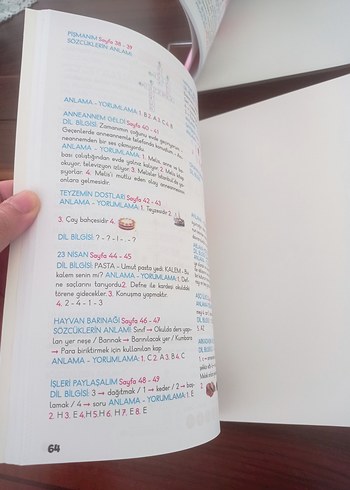 PİŞMANIM Sayfa 38 - 39
SÖZCÜKLERİN ANLAMI
ANLAMA - YORUMLAMA: 1. B 2. A 3. C 4. B
ANNEANNEM GELDİ Sayfa 40 - 41
DİL BİLGİSİ: Zamanımın çoğunu evde geçiriyorum.
Geçenlerde anneannemle telefonda konuştum. - An-
neannemden bir ses çıkmıyordu.
ANLAMA - YORUMLAMA: 1. Melis, anne ve ba-
bası çalıştığından evde yalnız kalıyor. 2. Melis kitap
okuyor, televizyon izliyor. 3. Melisler İstanbul'da ya-
şıyorlar. 4. Melis'i mutlu eden olay anneannesinin
onlara gelmesidir.
TEYZEMİN DOSTLARI Sayfa 42 - 43
ANLAMA - YORUMLAMA: 1. Teyzesidir 2.
3. Çay bahçesidir 4.
DİL BİLGİSİ: ? - ? - ! - . - ?
23 NİSAN Sayfa 44 - 45
DİL BİLGİSİ: PASTA - Umut pasta yedi. KALEM - Bu
kalem senin mi? ANLAMA - YORUMLAMA: 1. Def-
ne saçlarını tarıyordu 2. Defne ile kardeşi okuldaki
törene gidecekler. 3. Konuşma yapmaktır.
4. 2 - 4 - 1 - 3
HAYVAN BARINAĞI Sayfa 46 - 47
SÖZCÜKLERİN ANLAMI: Sınıf → Okulda ders yapı-
lan yer neşe / Barınak → Barınılacak yer / Kumbara
→ Para biriktirmek için kullanılan kap
ANLAMA - YORUMLAMA: 1. C 2. A 3. B 4. C
İŞLERİ PAYLAŞALIM Sayfa 48 - 49
DİL BİLGİSİ: 3 → dağıtmak / 1 → keder / 2 → baş-
lamak / 4 → soru ANLAMA - YORUMLAMA: 1. E
2. H 3. E 4. H 5. H 6. H 7. E 8. E
64